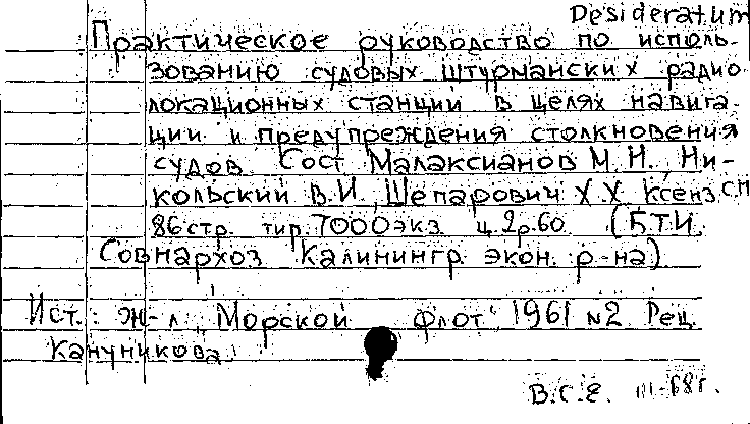 Desideratum
Практическое руководство по исполь-
зованию судовых штурманских радио
локационных станций в целях навига-
ции и предупреждения столкновения
судов. Сост Малаксианов М. Н., Ни-
кольский В.И, Шепарович Х Х Ксенз С П
86 стр. тир. 7000 экз ц. 2р.60. (БТИ.
Совнархоз Калинингр экон. р-на)
Ист.: ж-л „Морской флот" 1961 №2 Рец
Кануникова.
В.С.Е. III-68г.